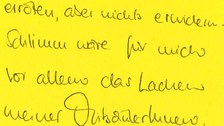 erröten, aber nichts erwidern.
Schlimm wäre für mich
vor allem das Lachen
meiner